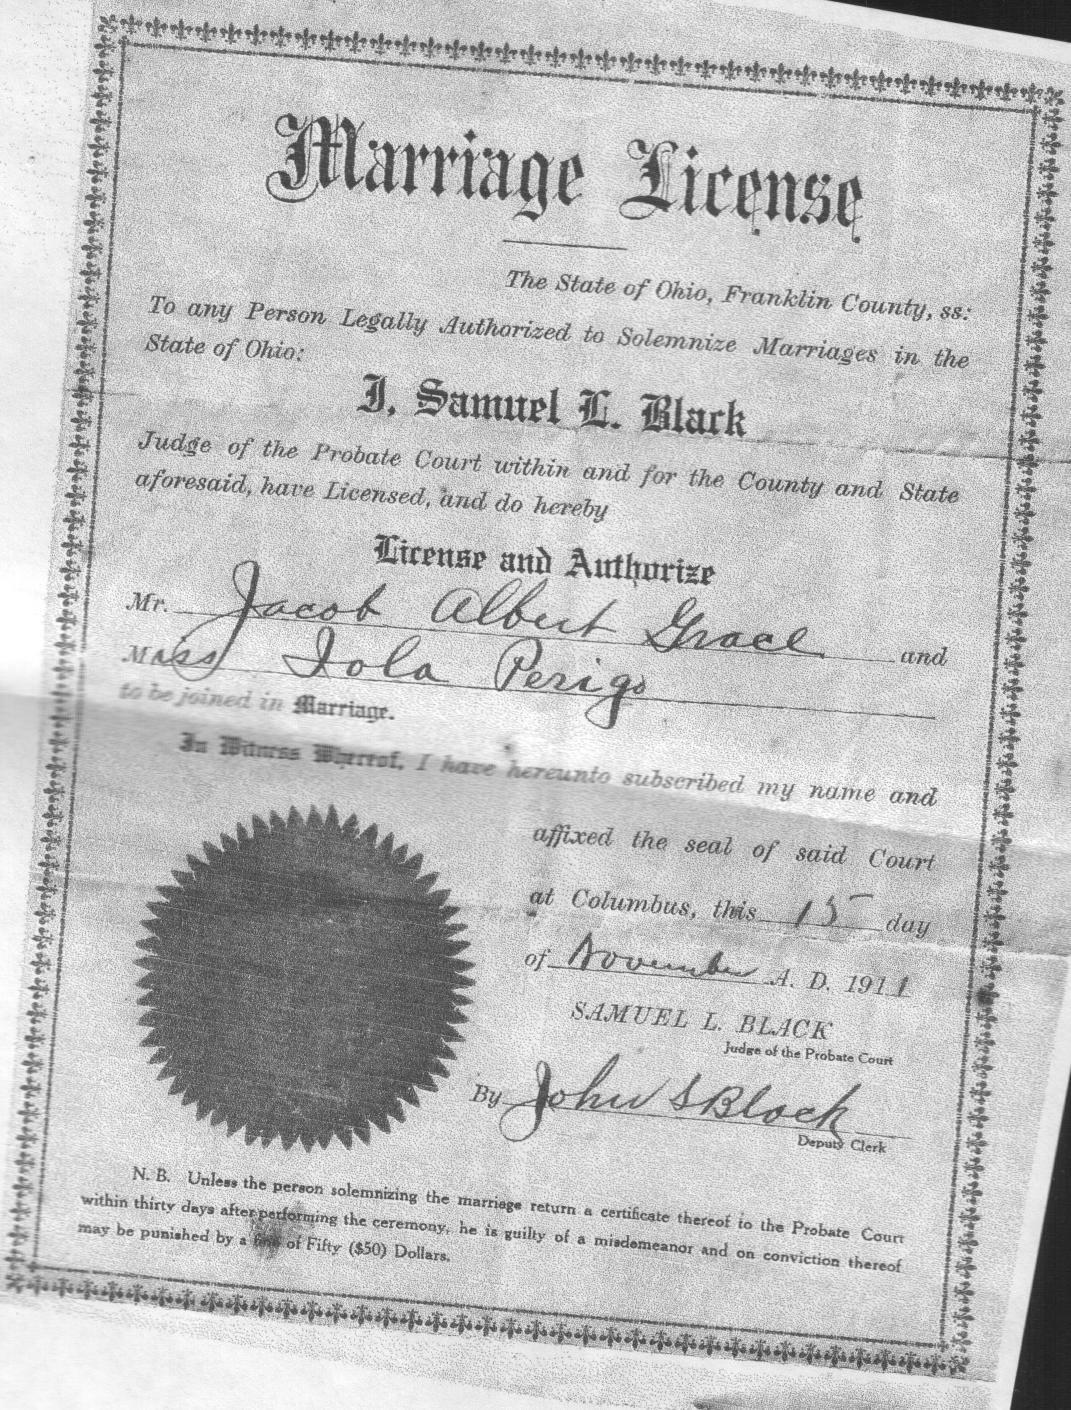 Marriage License
The State of Ohio, Franklin County, ss:
To any Person Legally Authorized to Solemnize Marriages in the
State of Ohio:
I, Samuel L. Black
Judge of the Probate Court within and for the County and State
aforesaid, have Licensed, and do hereby
License and Authorize
Mr. Jacob Albert Grace and
Miss Iola Perigo
to be joined in Marriage.
In Witness Whereof, I have hereunto subscribed my name and
affixed the seal of said Court
at Columbus, this 15 day
of November A. D. 1911
SAMUEL L. BLACK
Judge of the Probate Court
By John S Black
Deputy Clerk
N. B. Unless the person solemnizing the marriage return a certificate thereof to the Probate Court
within thirty days after performing the ceremony, he is guilty of a misdemeanor and on conviction thereof
may be punished by a fine of Fifty ($50) Dollars.